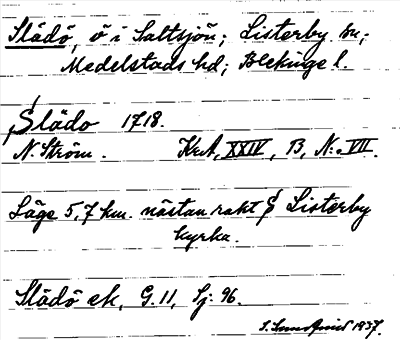 Slädö, ö i Saltsjön; Listerby sn;
Medelstads hd; Blekinge l.
Slädo 1718.
N. Ström. KrA, XXIV, B, N:o VII.
Läge 5,7 km. nästan rakt S Listerby
kyrka.
Slädö ek, G. 11, Sj: 96.
1937.